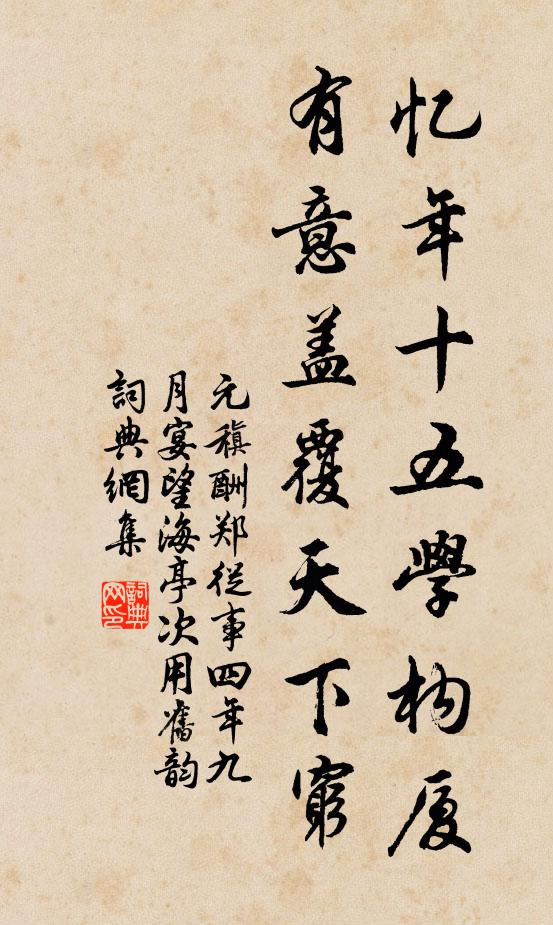 忆年十五學构厦
有意盖覆天下窮
元稹酬郑從事四年九
月宴望海亭次用舊韵
詞典網集
詞典网印